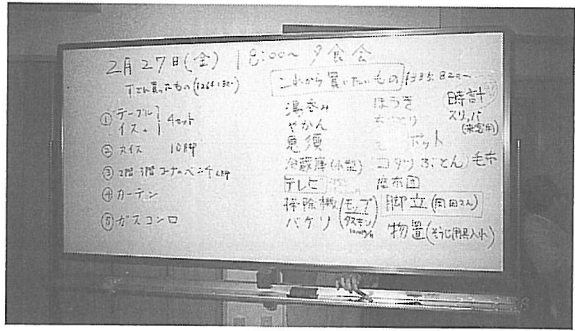 2月27日(金) 18:00～夕食会
すでに買ったもの
① テーブル
イス 4セット
② イス 10脚
③ 2階 3階 コーナーベンチ
④ カーテン
⑤ ガスコンロ
これから買いたいもの
湯呑み
やかん
急須
冷蔵庫(小型)
テレビ
掃除機
バケツ
モップ
ダスキン
ほうき
ちりとり
ポット
コタツ ぶとん 毛布
座布団
脚立
物置(そうじ用具入れ)
時計
スリッパ
(来客用)